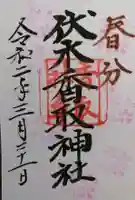 春分
伏木香取神社
令和二年三月二十日